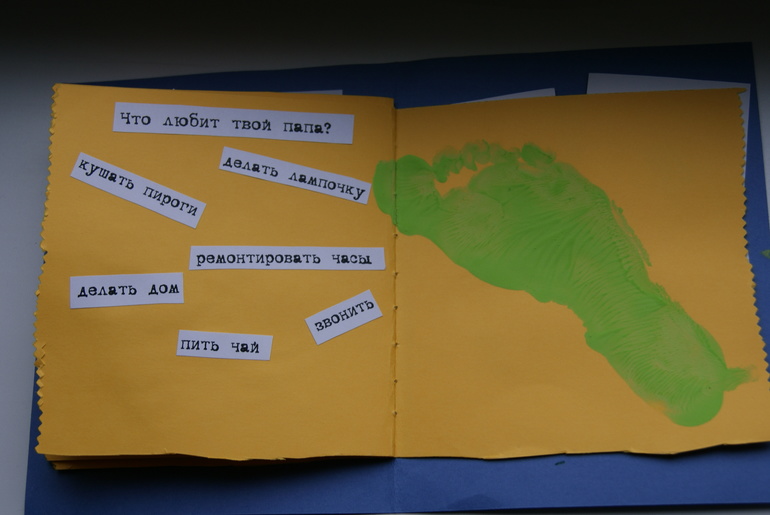 Что любит твой папа?
делать лампочку
кушать пироги
ремонтировать часы
делать дом
звонить
пить чай